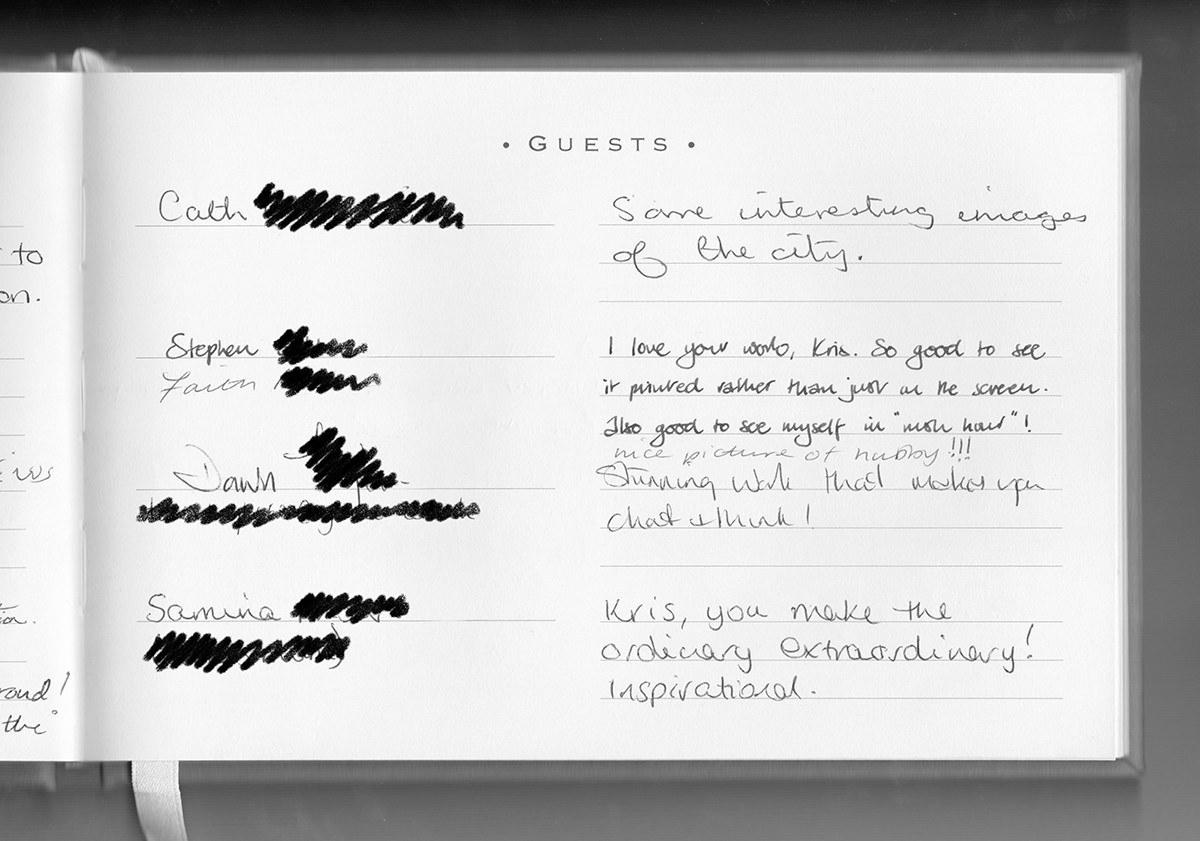 • GUESTS •
Cath
Some interesting images
of the city.
Stephen
Faith
I love your work, Kris. So good to see
it printed rather than just on the screen.
Also good to see myself in "
nice picture of hubby!!!
Dawn
Stunning work that makes you
chat & think!
Samina
Kris, you make the
ordinary extraordinary!
Inspirational.
to
on.
the